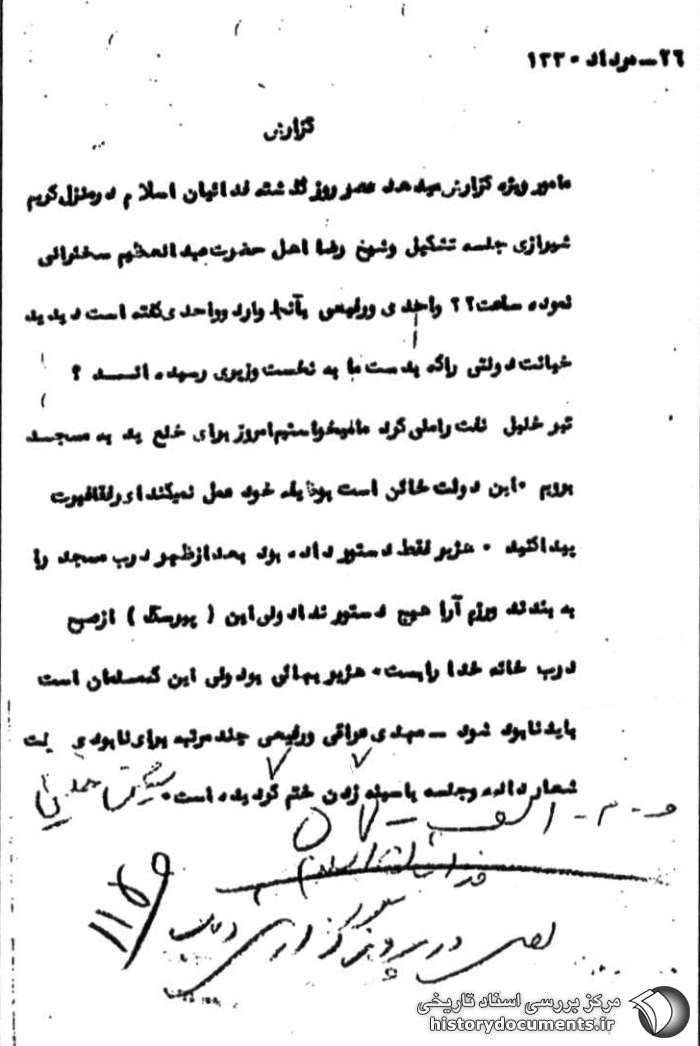 ۲۶ــ مرداد ۱۳۳۰
گزارش
مامور ویژه گزارش میدهد عصر روز گذشته فدائیان اسلام در منزل کریم
شیرازی جلسه تشکیل و شیخ رضا اهل حضرت عبدالعظیم سخنرانی
نموده ساعت ۲۲ واحدی و رفیعی بآنجا وارد و واحدی گفته است دیدید
خیانت دولتی راکه بدست ما به نخست وزیری رسیده انــد ؟
تیر خلیل نفت را ملی کرد مامیخواستیم امروز برای خلع ید به مسجـد
برویم ۰ این دولت خائن است بوظیفه خود عمل نمیکند ای رفقا غیرت
پیدا کنید ۰ هژیر فقط دستور داده بود بعد از ظهر درب مسجد را
به بندند ورزم آرا هیچ دستور نداد ولی این ( پیرسگ ) از صبح
درب خانه خدا را بست ۰ هژیر بهائی بود ولی این که مسلمان است
باید نابود شود ــ مهدی عراقی و رفیعی چند مرتبه برای نابودی
شعار داده و جلسه با سینه زدن ختم گردیده است ۰
و - م - الف
فدائیان اسلام
اصل در پرونده گزارش
۱۱۴۹
مرکز بررسی اسناد تاریخی
historydocuments.ir